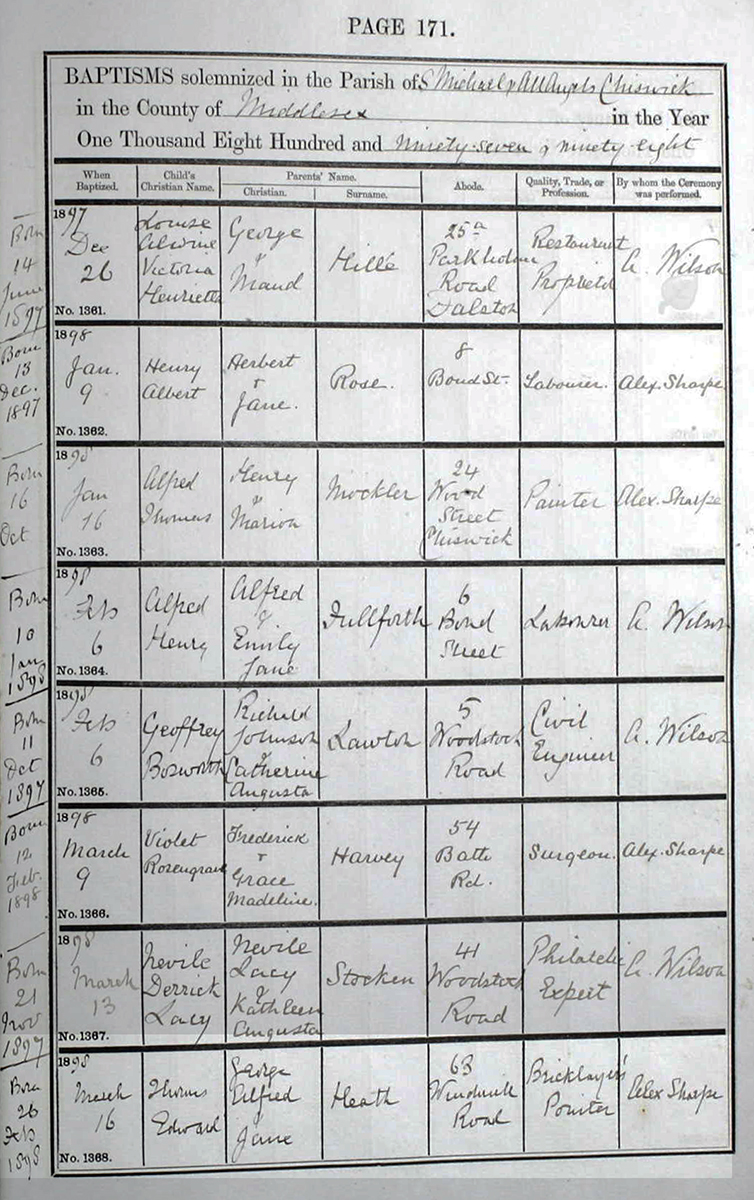 PAGE 171.
BAPTISMS solemnized in the Parish of St Michael & All Angels Chiswick
in the County of Middlesex in the Year
One Thousand Eight Hundred and ninety-seven & ninety-eight
When Baptized. Child's Christian Name. Parents' Name. Christian. Surname. Abode. Quality, Trade, or Profession. By whom the Ceremony was performed.
Born
14
June
1897
1897
Dec
26
No. 1361.
Louise
Victoria
Henrietta
George
&
Maud
Hillé
25a
Parkholme
Road
Dalston
Restaurant
Proprietor
A. Wilson
Born
13
Dec.
1897
1898
Jan.
9
No. 1362.
Henry
Albert
Herbert
&
Jane.
Rose.
8
Bond St.
Labourer.
Alex. Sharpe
Born
16
Oct
1898
Jan
16
No. 1363.
Alfred
Thomas
Henry
&
Marion
Mockler
24
Wood
Street
Chiswick
Painter
Alex. Sharpe
Born
10
Jan
1898
1898
Feb
6
No. 1364.
Alfred
Henry
Alfred
&
Emily
Jane
Fullforth
6
Bond
Street
Labourer
A. Wilson
Born
11
Oct
1897
1898
Feb
6
No. 1365.
Geoffrey
Bosworth
Richard
Johnson
&
Catherine
Augusta
Lawton
5
Woodstock
Road
Civil
Engineer
A. Wilson
Born
12
Feb.
1898
1898
March
9
No. 1366.
Violet
Frederick
&
Grace
Madeline.
Harvey
54
Bath
Rd.
Surgeon.
Alex. Sharpe
Born
21
Nov
1897
1898
March
13
No. 1367.
Nevile
Derrick
Lacy
Nevile
Lacy
&
Kathleen
Augusta
Stocken
41
Woodstock
Road
Philatelic
Expert
A. Wilson
Born
26
Feb
1898
1898
March
16
No. 1368.
Thomas
Edward
George
Alfred
&
Jane
Heath
63
Road
Bricklayer's
Pointer
Alex Sharpe